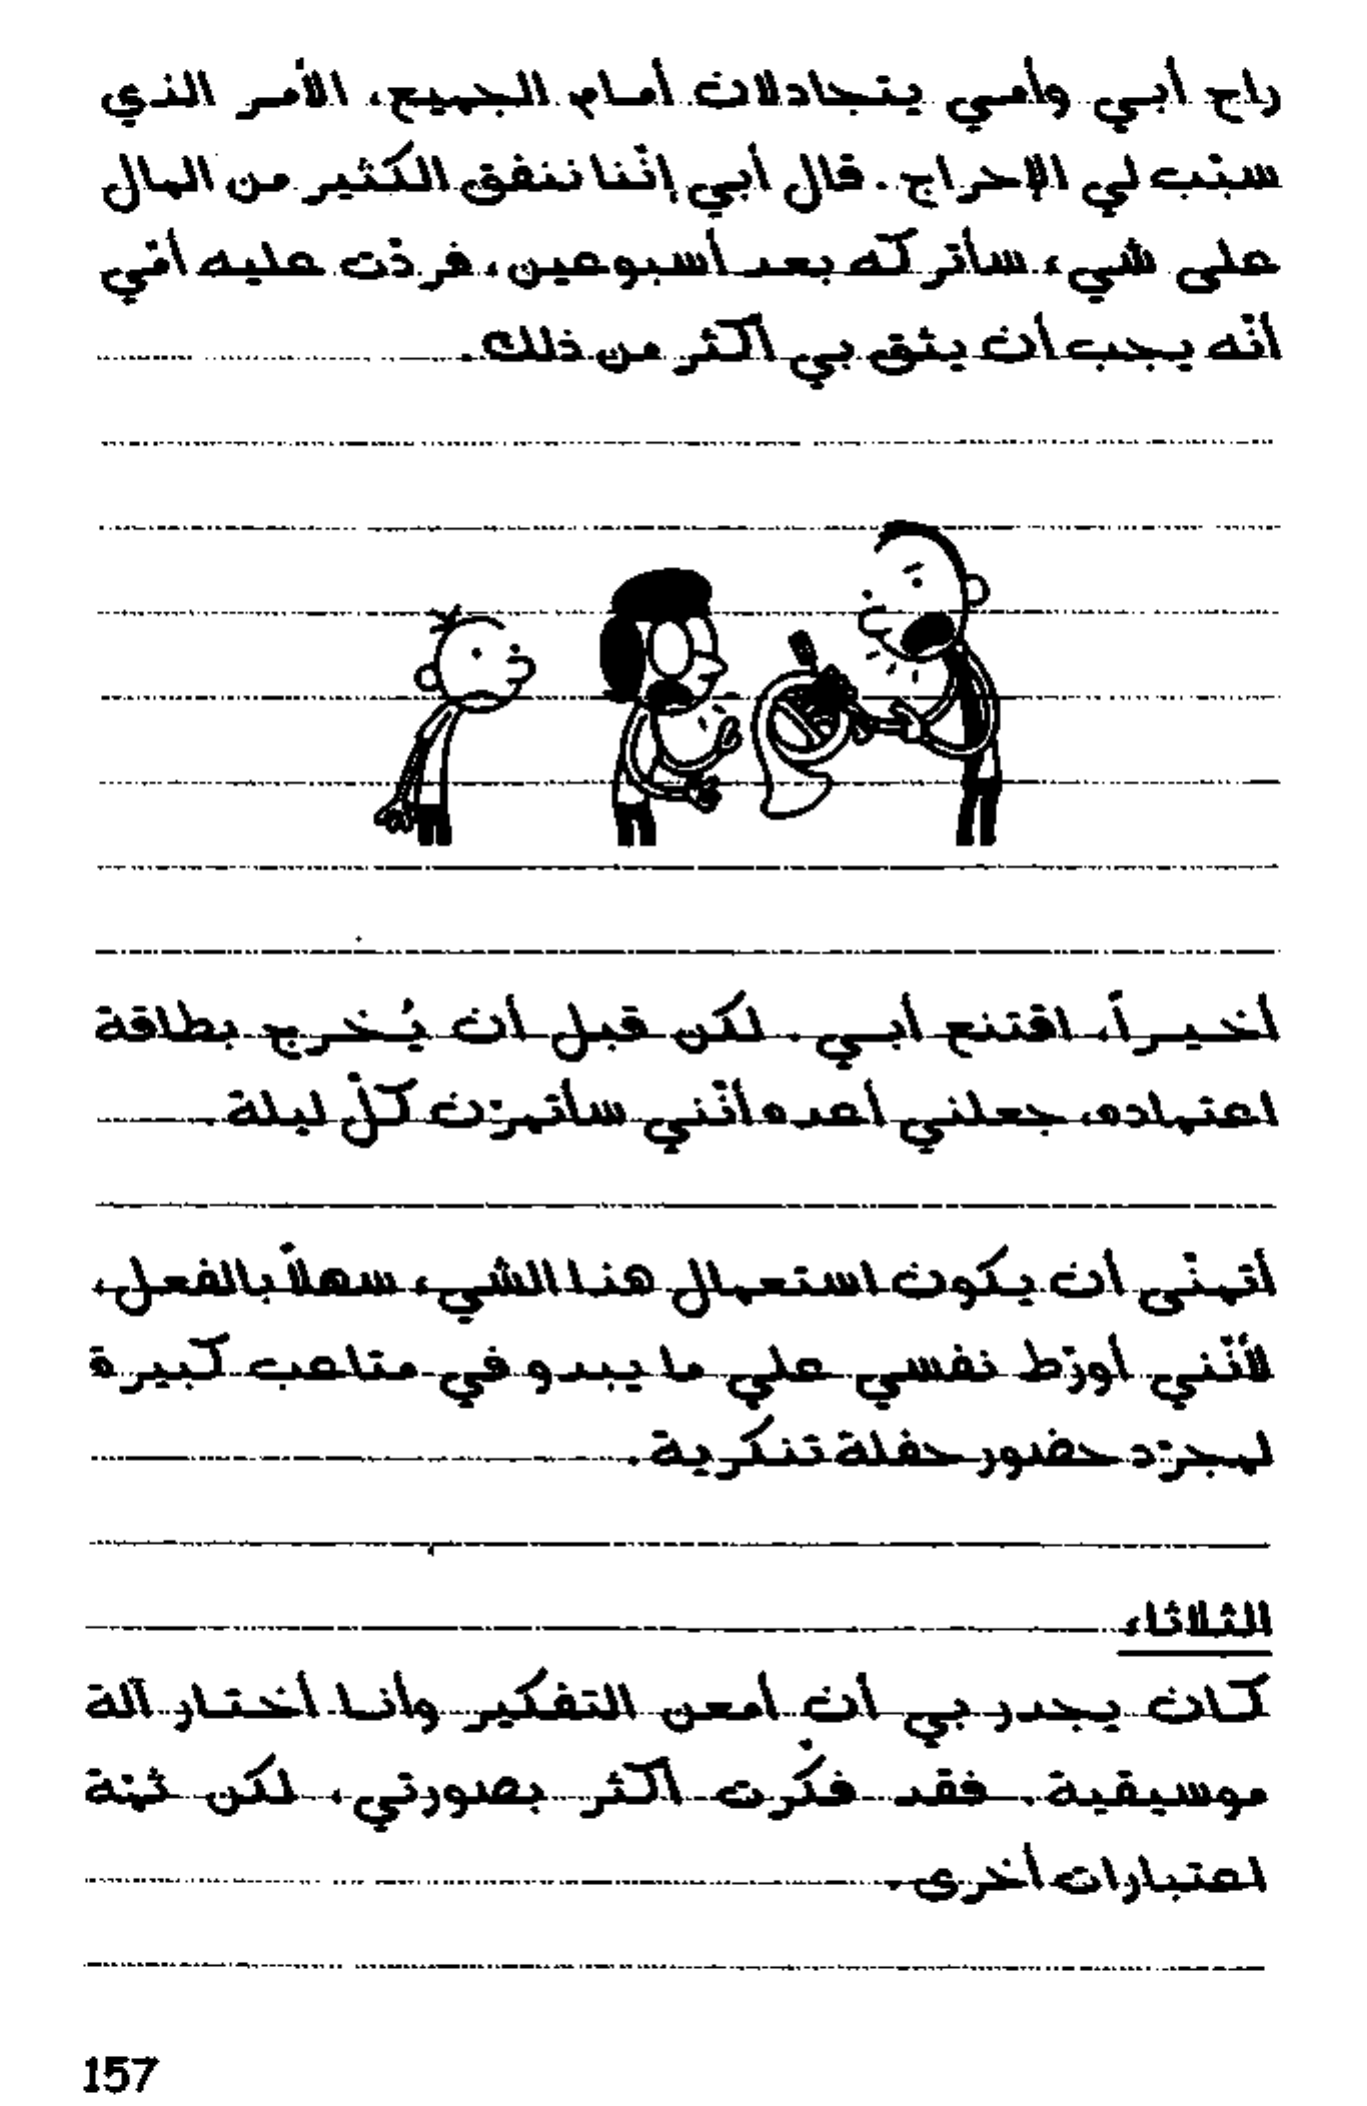 راح أبي وأمي يتجادلان أمام الجميع، الأمر الذي
سبّب لي الإحراج. قال أبي إنّنا ننفق الكثير من المال
على شيء سأتركه بعد أسبوعين، فردّت عليه أمّي
أنّه يجب أن يثق بي أكثر من ذلك.
أخيراً، اقتنع أبي. لكن قبل أن يُخرج بطاقة
اعتماده، جعلني أعده أنّني سأتمرّن كلّ ليلة.
أتمنّى أن يكون استعمال هذا الشيء سهلاً بالفعل،
لأنّني أورّط نفسي علي ما يبدو في متاعب كبيرة
لمجرّد حضور حفلة تنكرية.
الثلاثاء
كان يجدر بي أن أمعن التفكير وأنا أختار آلة
موسيقية. فقد فكّرت أكثر بصورتي، لكن ثمّة
اعتبارات أخرى.
157